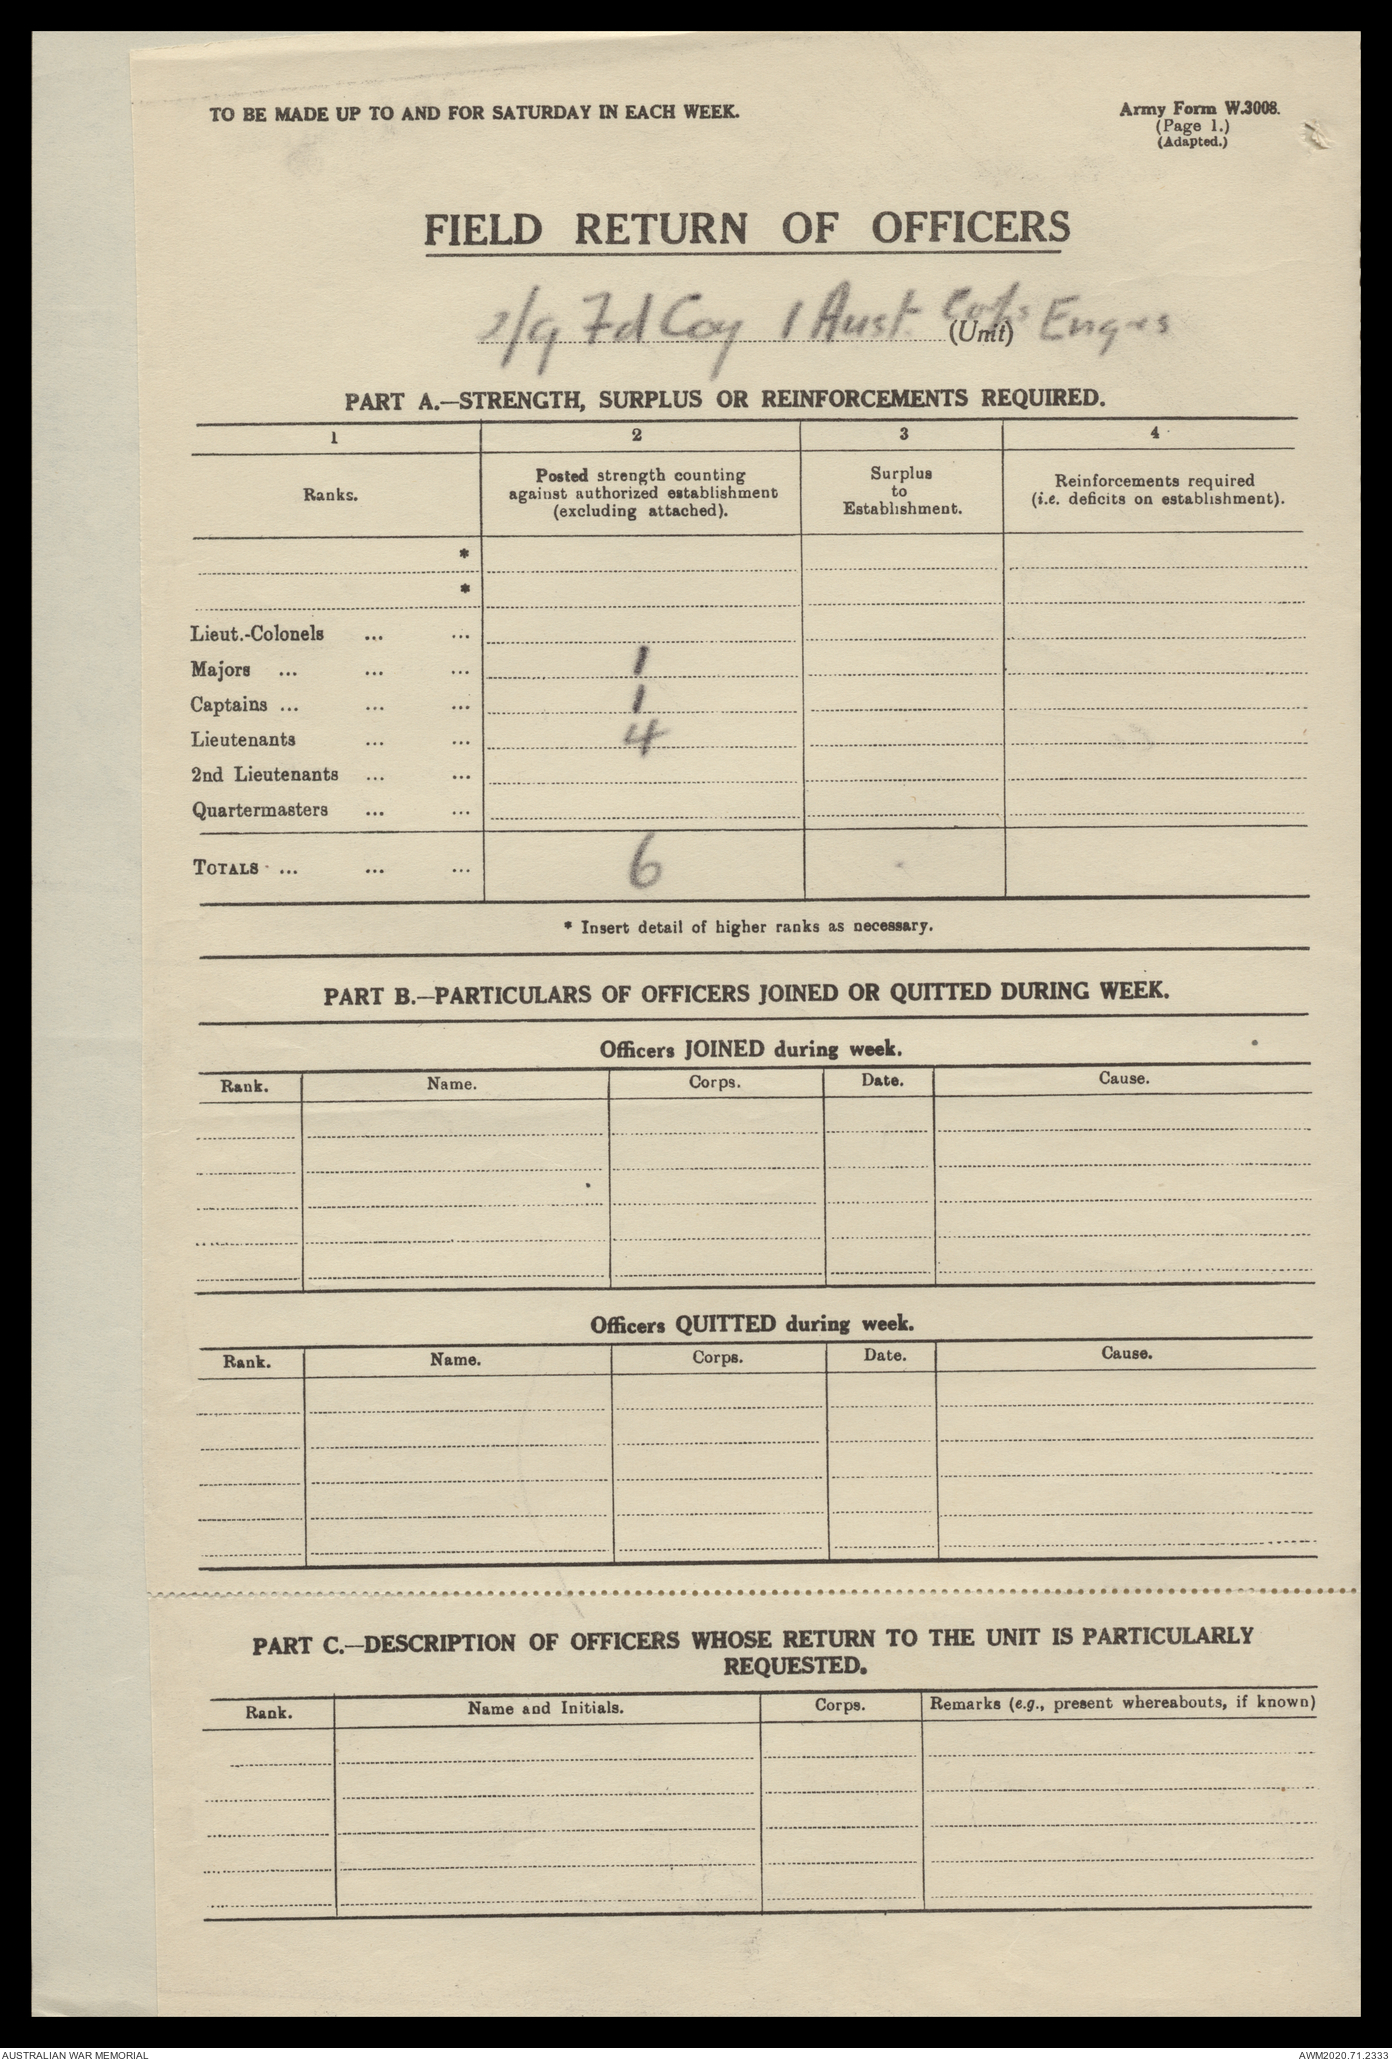 TO BE MADE UP TO AND FOR SATURDAY IN EACH WEEK.
Army Form W.3008.
(Page 1.)
(Adapted.)
FIELD RETURN OF OFFICERS
2/9 Fd Coy 1 Aust. Corps Engrs
(Unit)
PART A.—STRENGTH, SURPLUS OR REINFORCEMENTS REQUIRED.
1 2 3 4
Ranks.
Posted strength counting
against authorized establishment
(excluding attached).
Surplus
to
Establishment.
Reinforcements required
(i.e. deficits on establishment).
*
*
Lieut.-Colonels ... ...
Majors ... ... ... 1
Captains ... ... ... 1
Lieutenants ... ... 4
2nd Lieutenants ... ...
Quartermasters ... ...
TOTALS ... ... ... 6
* Insert detail of higher ranks as necessary.
PART B.—PARTICULARS OF OFFICERS JOINED OR QUITTED DURING WEEK.
Officers JOINED during week.
Rank. Name. Corps. Date. Cause.
Officers QUITTED during week.
Rank. Name. Corps. Date. Cause.
PART C.—DESCRIPTION OF OFFICERS WHOSE RETURN TO THE UNIT IS PARTICULARLY
REQUESTED.
Rank. Name and Initials. Corps. Remarks (e.g., present whereabouts, if known)
AUSTRALIAN WAR MEMORIAL
AWM2020.71.2333